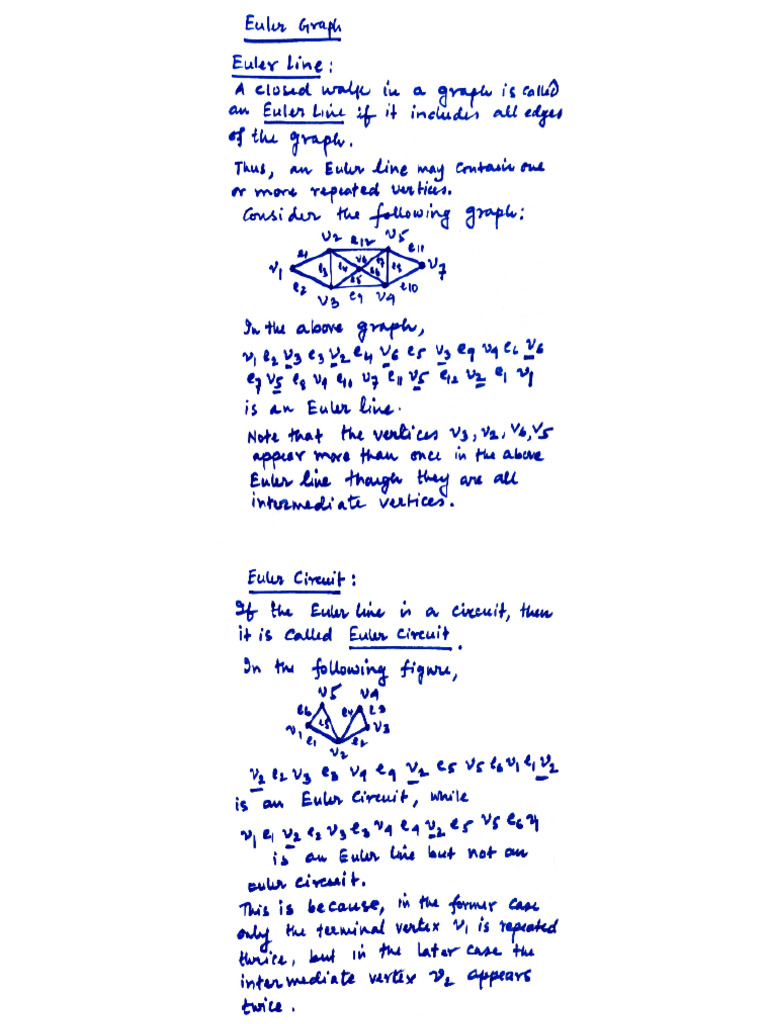 Euler Graph
Euler Line:
A closed walk in a graph is called
an Euler Line if it includes all edges
of the graph.
Thus, an Euler line may contain one
or more repeated vertices.
Consider the following graph:
v2 e12 v5
e1 e11
v1 e3 e4 v6 e7 e8 v7
e2 e5 e6 e10
v3 e9 v4
In the above graph,
v1 e2 v3 e3 v2 e4 v6 e5 v3 e9 v4 e6 v6
e7 v5 e8 v4 e10 v7 e11 v5 e12 v2 e1 v1
is an Euler line.
Note that the vertices v3, v2, v6, v5
appear more than once in the above
Euler line though they are all
intermediate vertices.
Euler Circuit:
If the Euler line is a circuit, then
it is called Euler Circuit.
In the following figure,
v5 v4
e6 e5 e4 e3
v1 v3
e1 e2
v2
v2 e2 v3 e3 v4 e4 v2 e5 v5 e6 v1 e1 v2
is an Euler Circuit, while
v1 e1 v2 e2 v3 e3 v4 e4 v2 e5 v5 e6 v1
is an Euler line but not an
euler circuit.
This is because, in the former case
only the terminal vertex v1 is repeated
thrice, but in the later case the
intermediate vertex v2 appears
twice.